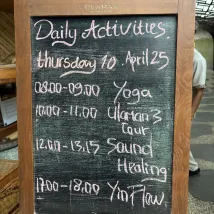 Daily Activities.
Thursday 10 April 25
08.00-09.00 Yoga
10.00-11.00 Ulaman's
Tour
12.00-13.15 Sound
Healing
17.00-18.00 Yin Flow.